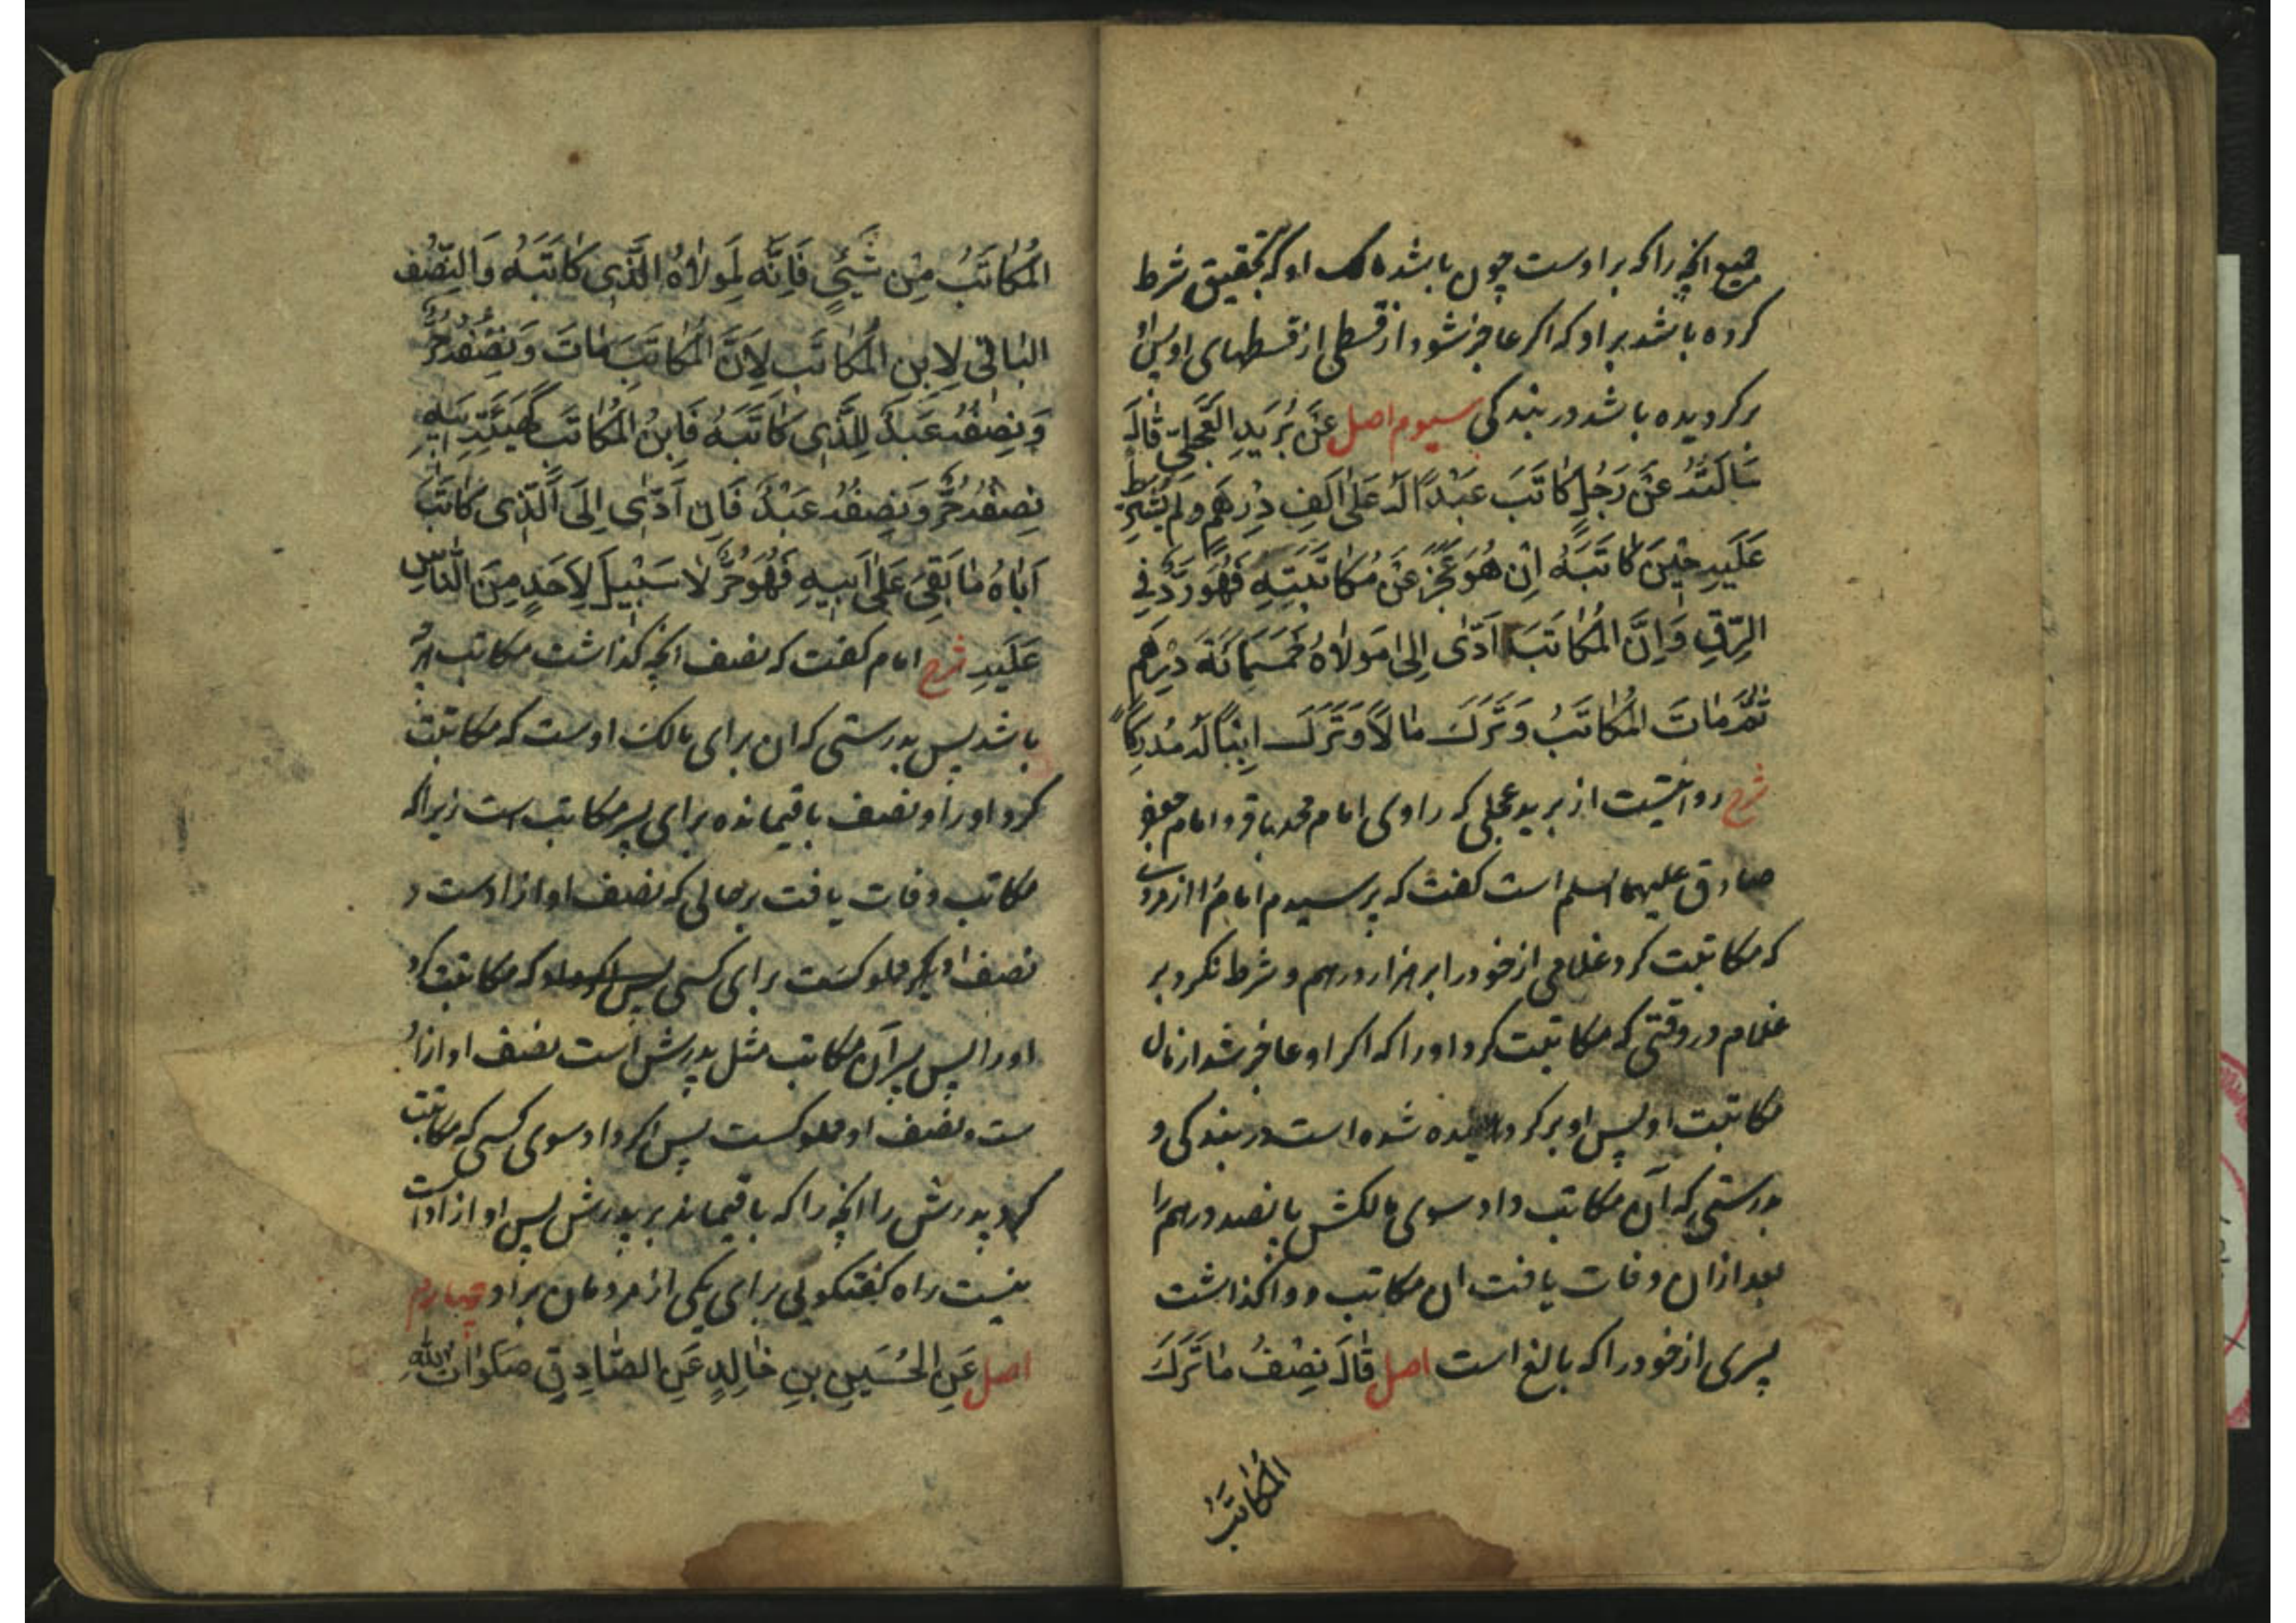 جمیع انچه را که بر اوست چون باشد مالک او که بتحقیق شرط
کرده باشد بر او که اکر عاجز شود از قسطی از قسطهای او پس او
بر کردیده باشد در بندکی سیوم اصل عَنْ بُرَیدِ العِجْلِیِّ قٰالَ
سَاَلتُهُ عَنْ رَجُلٍ کٰاتَبَ عَبْدًا لَهُ عَلٰی اَلفِ دِرْهَمٍ و لم یَشْتَرِط
عَلَیهِ حِینَ کٰاتَبَهُ اِنْ هُوَ عَجَزَ عَنْ مُکٰاتَبَتِهِ فَهُوَ رَدٌّ فِی
الرِّقِّ وَاِنَّ المُکٰاتَبَ اَدّٰی اِلٰی مَولاٰهُ خَمسَمِائَةَ دِرْهَم
ثُمَّ مٰاتَ المُکٰاتَبُ وَتَرَکَ مٰالاً وَتَرَکَ اِبْنًا لَهُ مُدْرِکًا
شرح روایتست از برید عجلی که راوی امام محمد باقر و امام جعفر
صادق علیهما السلم است کفت که پرسیدم امام را از مردی
که مکاتبت کرد غلامی از خود را بر هزار درهم و شرط نکرد بر
غلام در وقتی که مکاتبت کرد او را که اکر او عاجز شد از مال
مکاتبت او پس او بر کردانیده شده است در بندکی و
بدرستی که آن مکاتب داد سوی مالکش پانصد درهم را
بعد ازان وفات یافت ان مکاتب و واکذاشت
پسری از خود را که بالغ است اصل قٰالَ نِصْفُ مٰا تَرَکَ
المُکٰاتَبُ
المُکٰاتَبُ مِنْ شَیْءٍ فَاِنَّه لِمَولاٰهُ الَّذِی کٰاتَبَهُ وَالنِّصْف
البٰاقی لِابنِ المُکٰاتَبِ لِاَنَّ المُکٰاتَبَ مٰاتَ وَنِصْفُهُ حُرٌّ
وَنِصْفُهُ عَبْدٌ لِلَّذِی کٰاتَبَهُ فَابنُ المُکٰاتَبِ کَهَیْئَةِ اَبِیهِ
نِصْفُهُ حُرٌّ وَنِصْفُهُ عَبْدٌ فَاِن اَدّٰی اِلَی الَّذِی کٰاتَبَ
اَبٰاهُ مٰا بَقِیَ عَلٰی اَبِیهِ فَهُوَ حُرٌّ لاٰ سَبِیلَ لِاَحَدٍ مِنَ النّٰاسِ
عَلَیهِ شرح امام کفت که نصف انچه کذاشت مکاتب
باشد پس بدرستی که ان برای مالک اوست که مکاتبت
کرد او را و نصف باقیمانده برای پسر مکاتب است زیرا که
مکاتب وفات یافت بر حالی که نصف او ازادست و
نصف مملوکست برای کسی که مکاتبت کرد
او را پس پسر آن مکاتب مثل پدرش است نصف او ازاد
ست و نصف او مملوکست پس اکر داد سوی کسی که مکاتبت
کرد پدرش را انچه را که باقیماند بر پدرش پس او ازاد است
نیست راه کفتکویی برای یکی از مردمان بر او چهارم
اصل عَنِ الحُسَینِ بنِ خٰالِدٍ عَنِ الصّٰادِقِ صَلَوٰاتُ اللّٰهِ